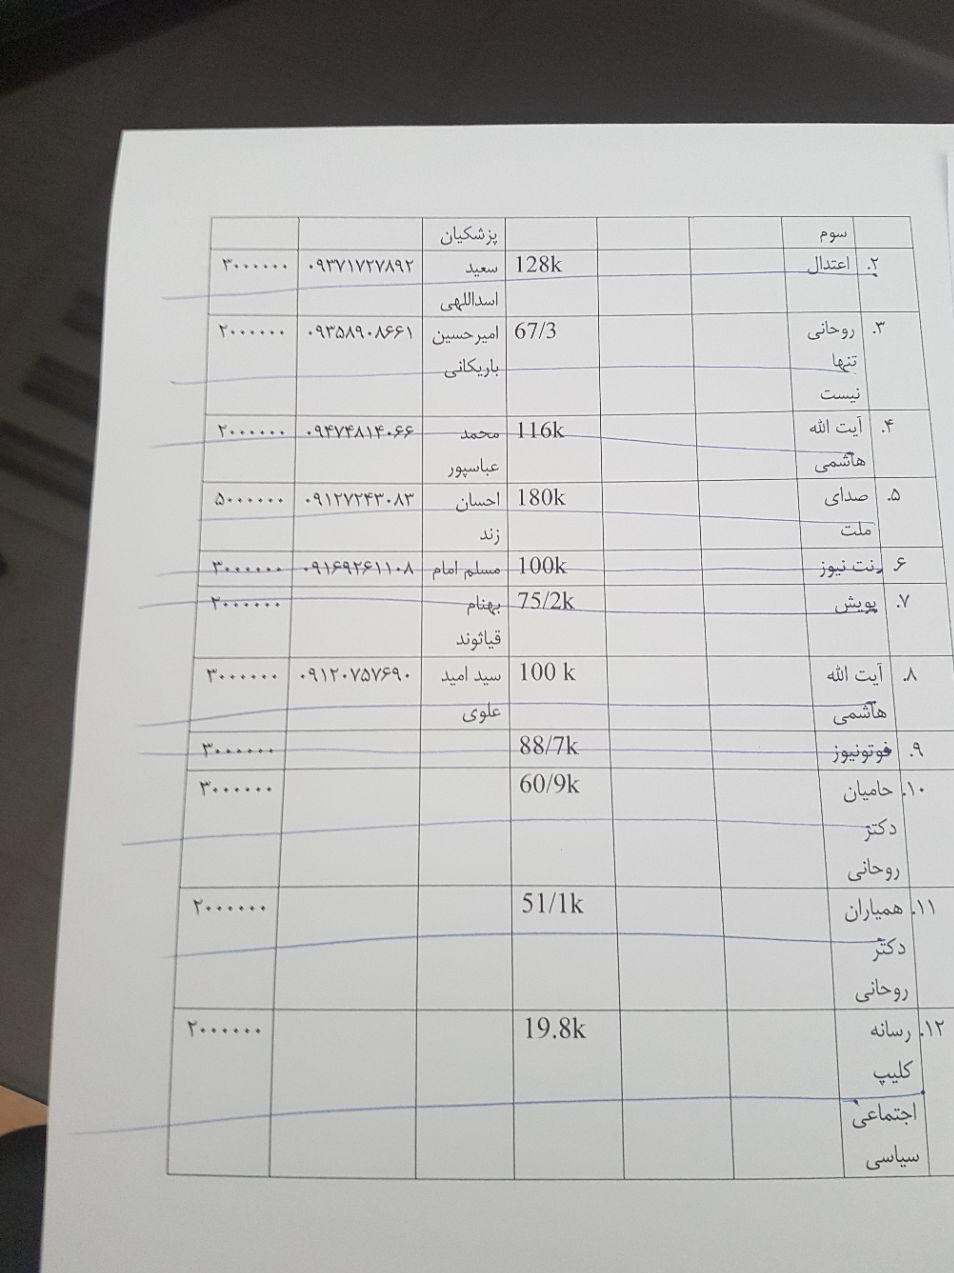 سوم پزشکیان
۲. اعتدال 128k سعید ۰۹۳۷۱۷۲۷۸۹۲ ۳۰۰۰۰۰۰
اسداللهی
۳. روحانی 67/3 امیرحسین ۰۹۳۵۸۹۰۸۶۶۱ ۲۰۰۰۰۰۰
تنها باریکانی
نیست
۴. آیت الله 116k محمد ۰۹۴۷۴۸۱۴۰۶۶ ۲۰۰۰۰۰۰
هاشمی عباسپور
۵. صدای 180k احسان ۰۹۱۲۷۲۴۳۰۸۳ ۵۰۰۰۰۰۰
ملت زند
۶ نت نیوز 100k مسلم امام ۰۹۱۶۹۲۶۱۱۰۸ ۳۰۰۰۰۰۰
۷. پویش 75/2k بهنام ۲۰۰۰۰۰۰
قیاثوند
۸. آیت الله 100 k سید امید ۰۹۱۲۰۷۵۷۶۹۰ ۳۰۰۰۰۰۰
هاشمی علوی
۹. فوتونیوز 88/7k ۳۰۰۰۰۰۰
۱۰. حامیان 60/9k ۳۰۰۰۰۰۰
دکتر
روحانی
۱۱. همیاران 51/1k ۲۰۰۰۰۰۰
دکتر
روحانی
۱۲. رسانه 19.8k ۲۰۰۰۰۰۰
کلیپ
اجتماعی
سیاسی